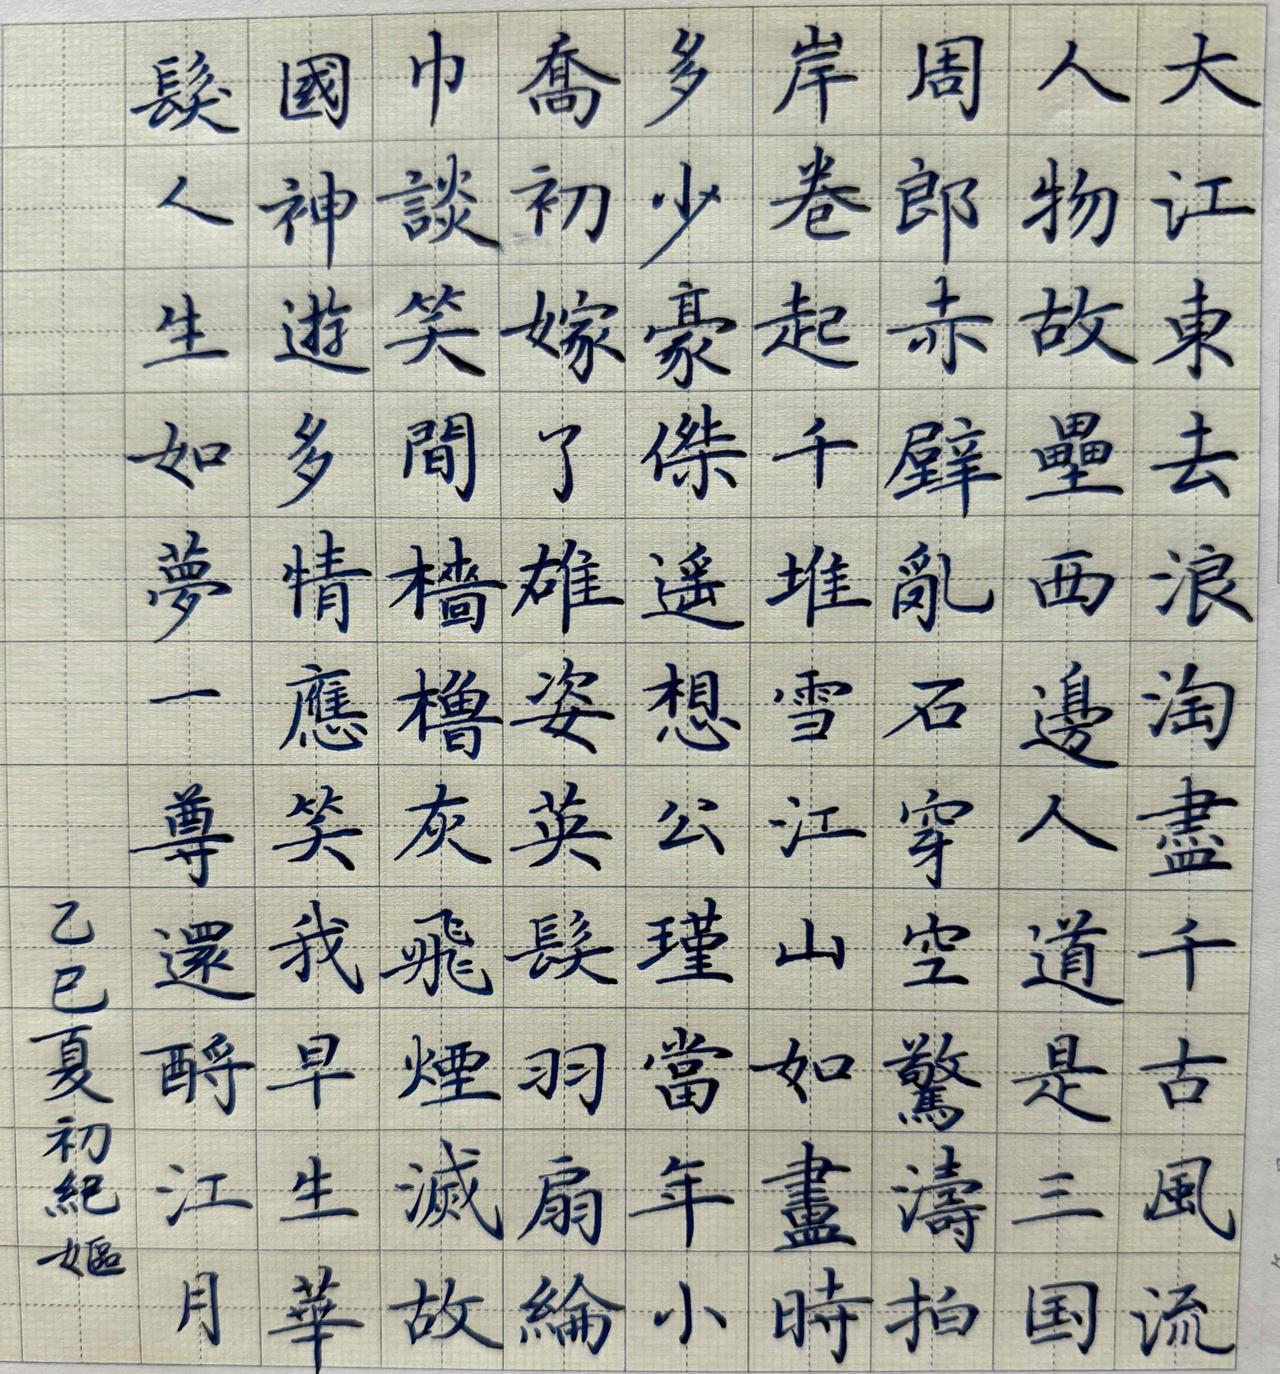 大江東去浪淘盡千古風流
人物故壘西邊人道是三国
周郎赤壁亂石穿空驚濤拍
岸卷起千堆雪江山如畫時
多少豪傑遥想公瑾當年小
喬初嫁了雄姿英髮羽扇綸
巾談笑間檣櫓灰飛煙滅故
國神遊多情應笑我早生華
髮人生如夢一尊還酹江月
乙巳夏初紀嫗